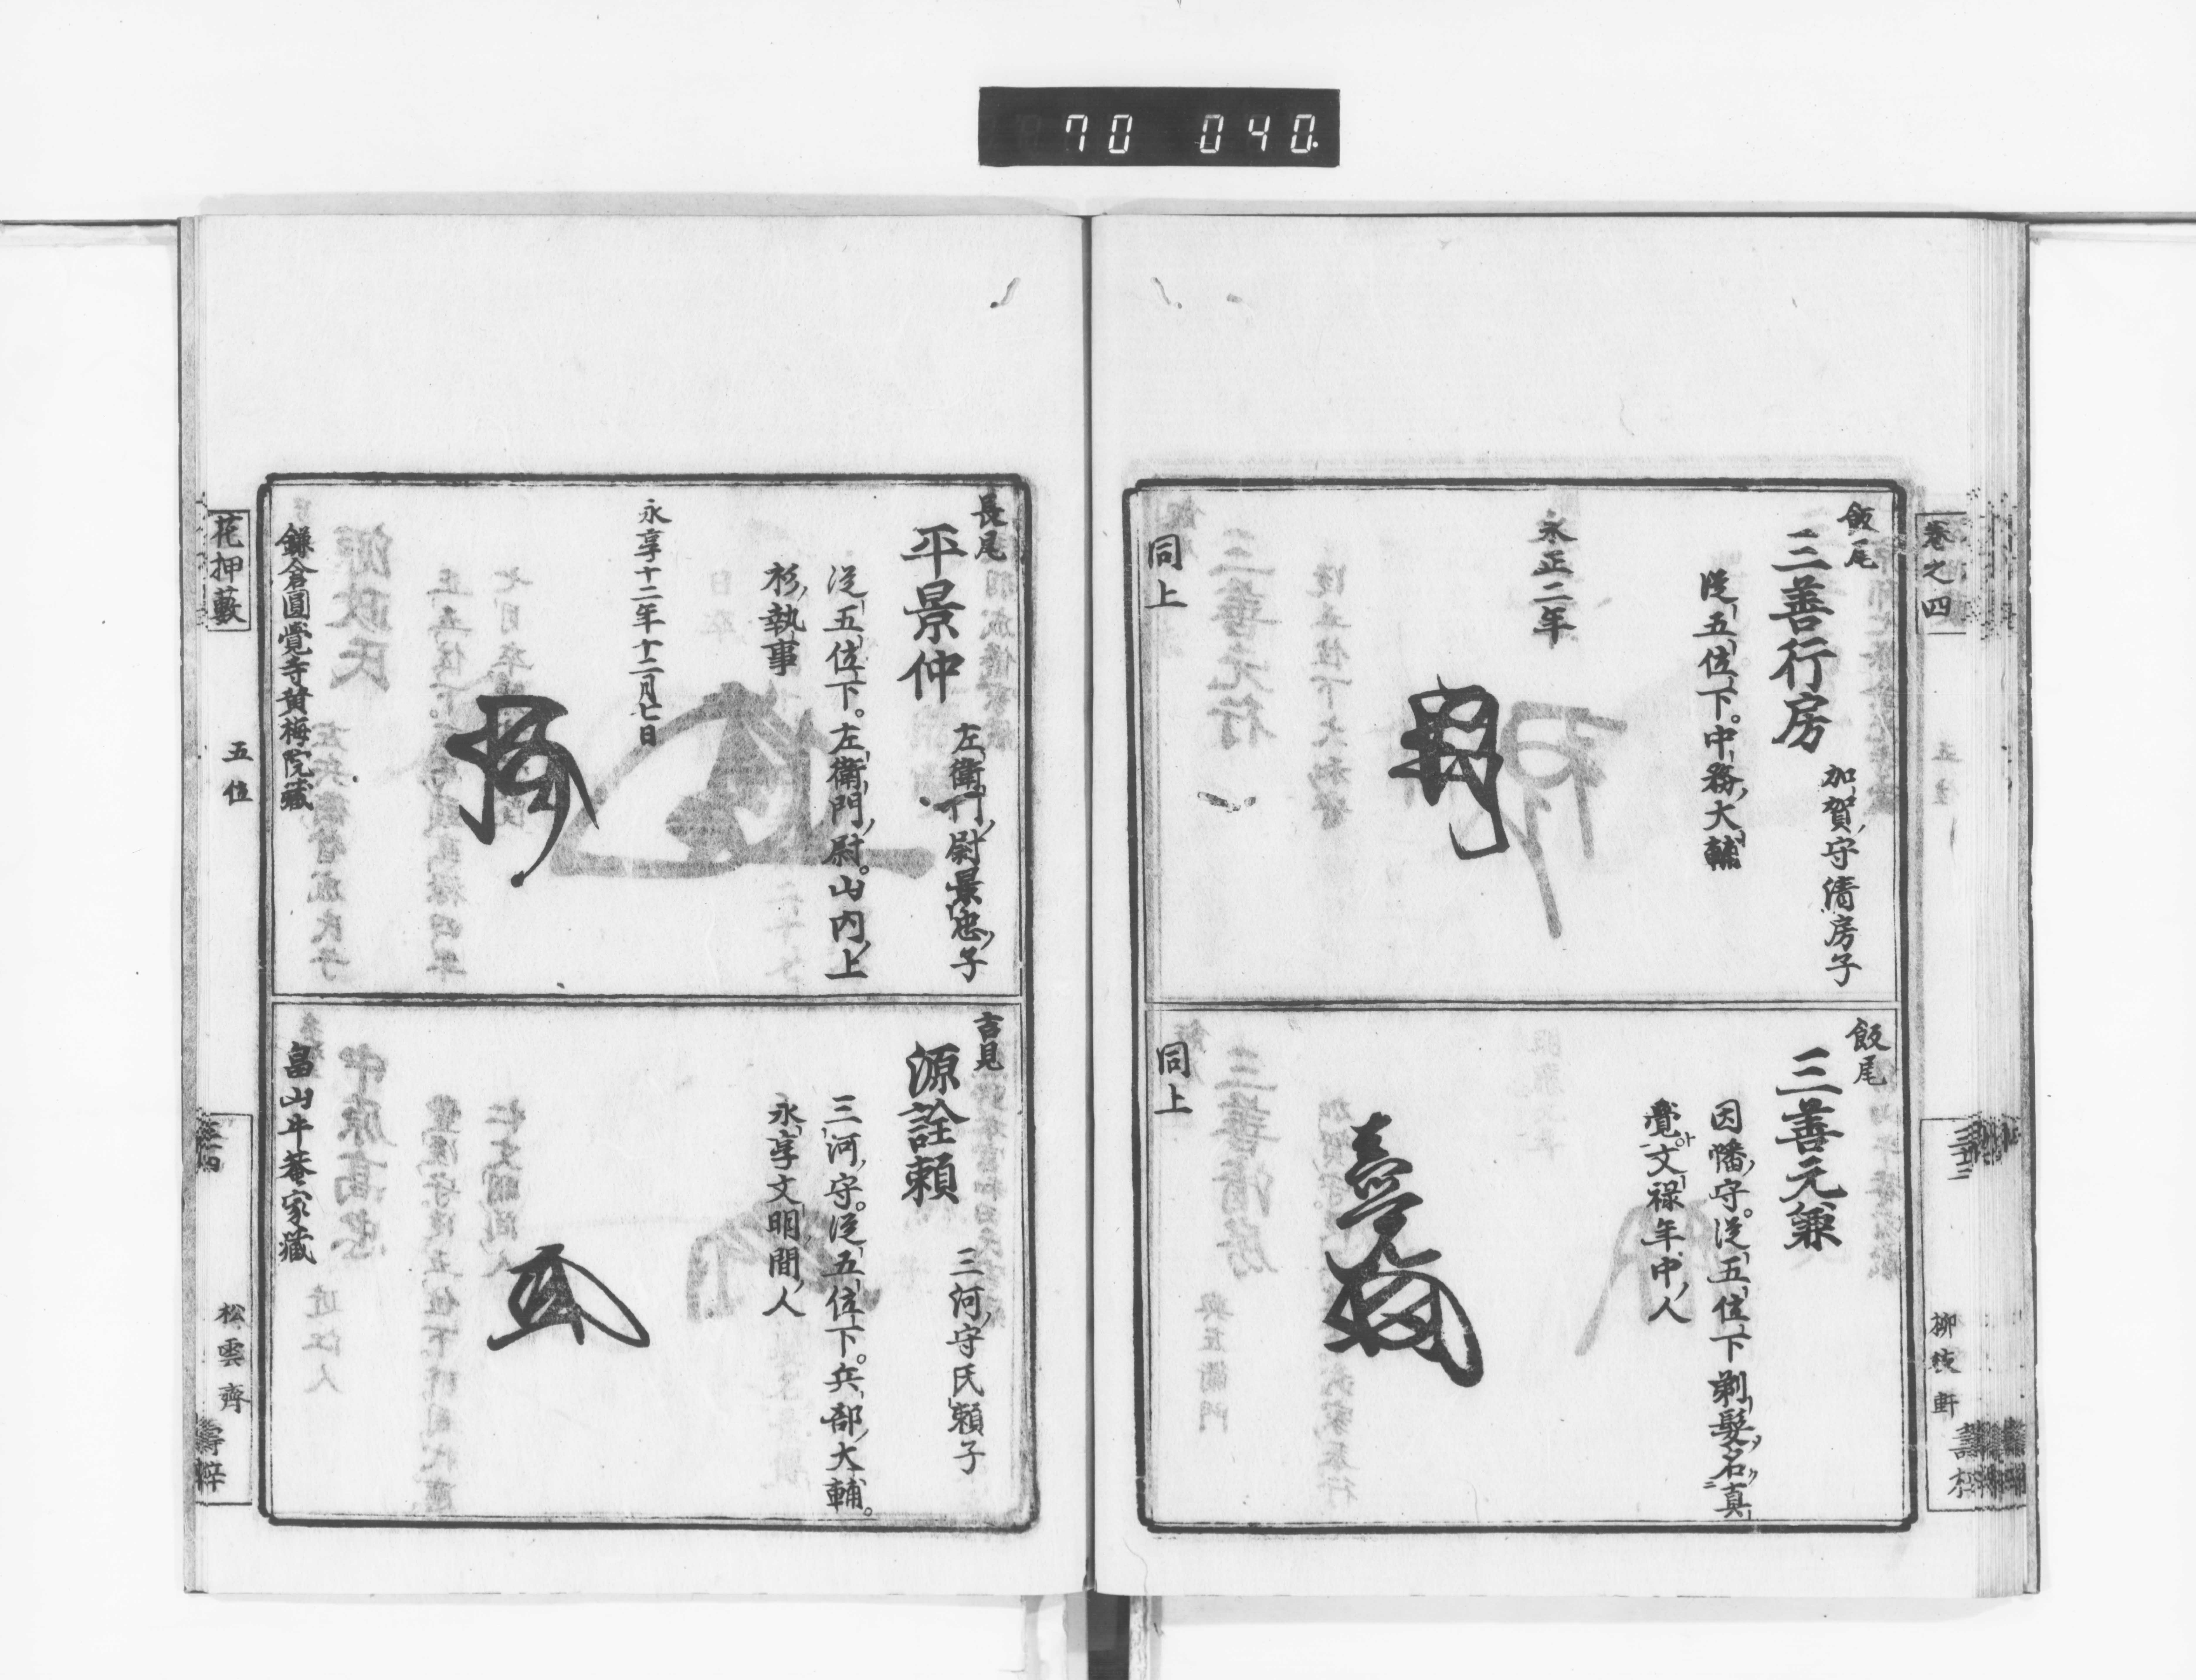 70 040
卷之四
飯尾
三善行房
加賀守清房子
従五位下。中務大輔
永正二年
同上
飯尾
三善元兼
因幡守。従五位下剃髮名真
覺文禄年中人
同上
柳枝軒
長尾
平景仲
左衛門尉景忠子
従五位下。左衛門尉。山内上
杉執事
永享十二年十二月七日
鎌倉圓覺寺黄梅院藏
吉見
源詮頼
三河守氏頼子
三河守。従五位下。兵部大輔。
永享文明間人
畠山牛菴家藏
花押藪
五位
松雲齊